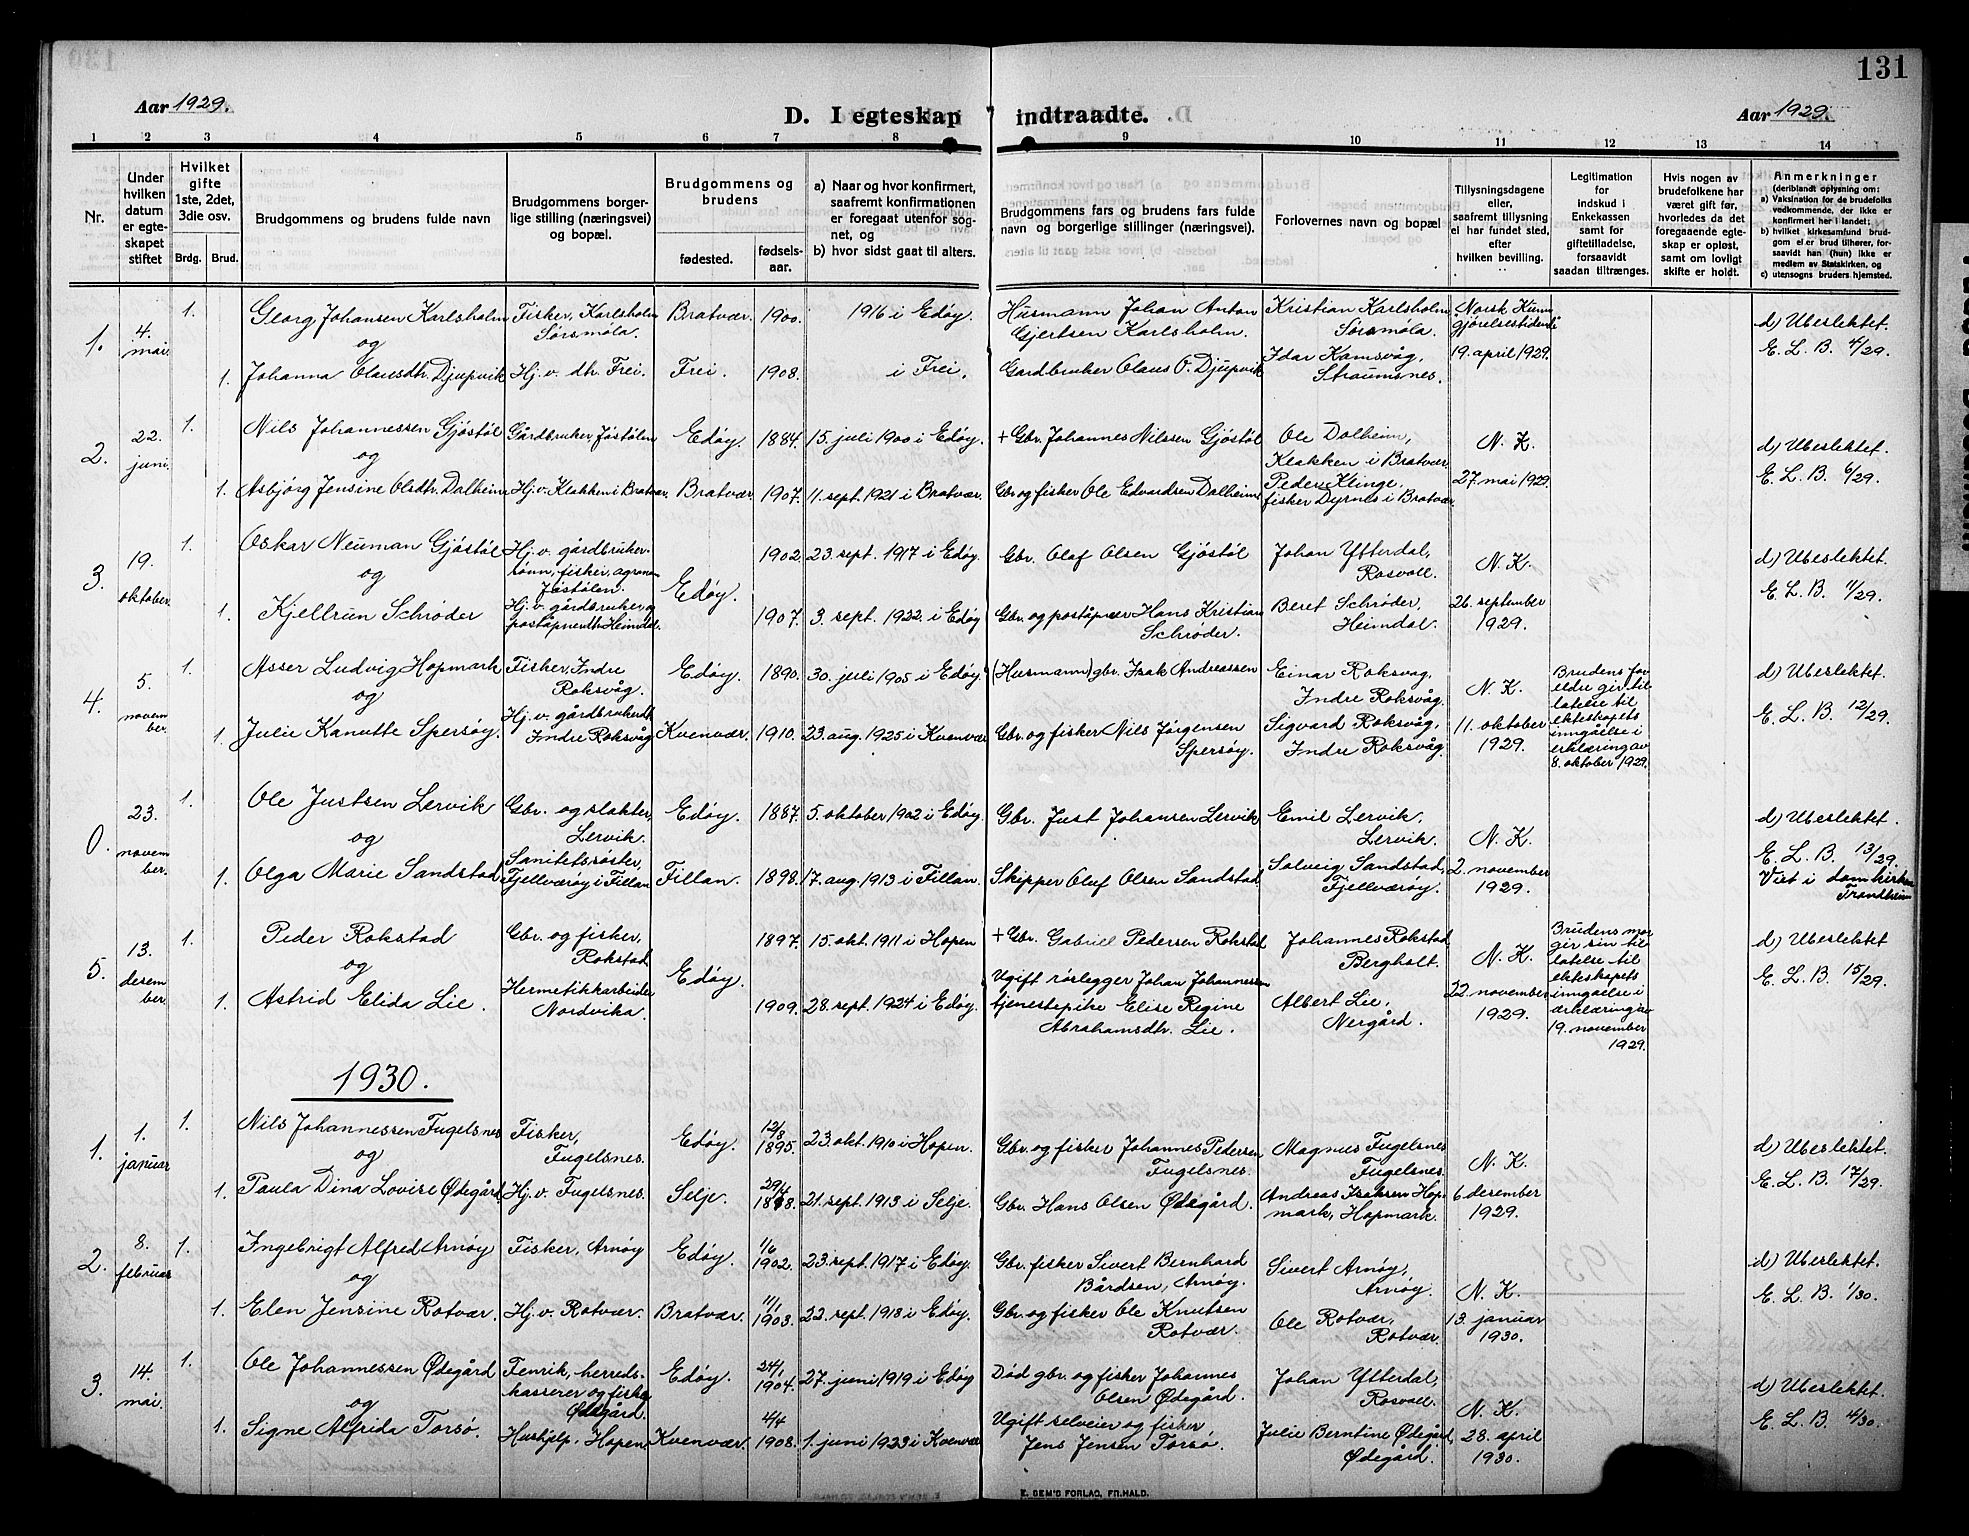 131
Aar 1929.
D. I egteskap indtraadte.
Aar 1929.
1 2 3 4 5 6 7 8 9 10 11 12 13 14
Nr.
Under hvilken datum er egteskapet stiftet
Hvilket gifte 1ste, 2det, 3die osv.
Brdg. Brud.
Brudgommens og brudens fulde navn
Brudgommens borgerlige stilling (næringsvei) og bopæl.
Brudgommens og brudens
fødested.
fødselsaar.
a) Naar og hvor konfirmert, saafremt konfirmationen er foregaat utenfor sognet, og
b) hvor sidst gaat til alters.
Brudgommens fars og brudens fars fulde navn og borgerlige stillinger (næringsvei).
Forlovernes navn og bopæl
Tillysningsdagene eller, saafremt tillysning ei har fundet sted, efter hvilken bevilling.
Legitimation for indskud i Enkekassen samt for giftetilladelse, forsaavidt saadan tiltrænges.
Hvis nogen av brudefolkene har været gift før, hvorledes da det foregaaende egteskap er opløst, samt om lovligt skifte er holdt.
Anmerkninger (deriblandt oplysning om:
a) Vaksination for de brudefolks vedkommende, der ikke er konfirmert her i landet;
b) hvilket kirkesamfund brudgom el er brud tilhører, forsaavidt han (hun) ikke er medlem av Statskirken, og
c) utensogns bruders hjemsted.
1. 4. mai 1. Georg Johansen Karlsholm Fisker, Karlsholm Sørsmøla. Bratvær. 1900. 1916 i Edøy. Husmann Johan Anton Gjertsen Karlsholm. Kristian Karlsholm Sørsmøla. Norsk Kunngjørelsestidende 19. april 1929. d) Ubeslektet. E. L. B. 4/29.
og
1. Johanna Olausdtr. Djupvik Hj. v. dtr. Frei. Frei. 1908. i Frei. Gardbruker Olaus O. Djupvik Idar Kamsvåg, Straumsnes.
2. 22. juni. 1. Nils Johannessen Gjøstøl Gårdbruker Jøstølen Edøy. 1884. 15. juli 1900 i Edøy. + Gbr. Johannes Nilssen Gjøstøl Ole Dalheim, Klakken i Bratvær. N. K. 27. mai 1929. d) Ubeslektet. E. L. B. 6/29.
og
1. Asbjørg Jensine Olsdtr. Dalheim Hj. v. Klakken i Bratvær. Bratvær. 1907. 11. sept. 1921 i Bratvær. Gbr. og fisker Ole Edvardsen Dalheim Peder Klinge, fisker Dyrnes i Bratvær.
3. 19. oktober. 1. Oskar Neuman Gjøstøl Hj. v. gårdbrukersønn, fisker, agronom Jøstølen. Edøy. 1902. 23. sept. 1917 i Edøy. Gbr. Olaf Olsen Gjøstøl Johan Ytterdal, Rosvoll. N. K. 26. september 1929. d) Ubeslektet. E. L. B. 11/29.
og
1. Kjellrun Schrøder Hj. v. gårdbruker og poståpnerdtr. Heimdal. 1907. 3. sept. 1922 i Edøy Gbr. og poståpner Hans Kristian Schrøder. Beret Schrøder, Heimdal.
4. 5. november. 1. Asser Ludvig Hopmark Fisker, Indre Roksvåg. Edøy. 1890. 30. juli 1905 i Edøy. (Husmann) gbr. Isak Andreassen Einar Roksvåg, Indre Roksvåg. N. K. 11. oktober 1929. Brudens foreldre gir tillatelse til ekteskapets inngåelse i erklæring av 8. oktober 1929. d) Ubeslektet. E. L. B. 12/29.
og
1. Julie Kanutte Spersøy. Hj. v. gårdbrukerdtr. Indre Roksvåg Kvenvær. 1910. 23. aug. 1925 i Kvenvær Gbr. og fisker Nils Jørgensen Spersøy. Sigvard Roksvåg, Indre Roksvåg.
0. 23. november. 1. Ole Justsen Lervik Gbr. og slakter, Lervik. Edøy. 1887. 5. oktober 1902 i Edøy. Gbr. Just Johansen Lervik Emil Lervik, Lervik. N. K. 2. november 1929. d) Ubeslektet. E. L. B. 13/29. Viet i domkirken Trondheim
og
1. Olga Marie Sandstad Sanitetssøster, Fjellværøy i Fillan Fillan. 1898. 17. aug. 1913 i Fillan. Skipper Oluf Olsen Sandstad Solveig Sandstad, Fjellværøy.
5. 13. desember. 1. Peder Rokstad Gbr. og fisker, Rokstad Edøy. 1897. 15. okt. 1911 i Hopen + Gbr. Gabriel Pedersen Rokstad Johannes Rokstad Bergholt. N. K. 22. november 1929. Brudens mor gir sin tillatelse til ekteskapets inngåelse i erklæring av 19. november 1929. d) Ubeslektet E. L. B. 15/29.
og
1. Astrid Elida Lie. Hermetikkarbeider Nordvika. 1909. 28. sept. 1924 i Edøy. Ugift rørlegger Johan Johannessen tjenestepike Elise Regine Abrahamsdtr. Lie. Albert Lie, Nergård.
1930.
1. 1. januar 1. Nils Johannessen Fugelsnes Fisker, Fugelsnes. Edøy. 12/8 1895. 23. okt. 1910 i Hopen. Gbr. og fisker Johannes Pedersen Fugelsnes. Magnus Fugelsnes Fugelsnes. N. K. 6. desember 1929. d) Ubeslektet. E. L. B. 17/29.
og
1. Paula Dina Lovise Ødegård Hj. v. Fugelsnes. Selje. 29/4 1898. 21. sept. 1913 i Selje. Gbr. Hans Olsen Ødegård. Andreas Isaksen Hopmark, Hopmark.
2. 8. februar 1. Ingebrigt Alfred Arnøy Fisker, Arnøy Edøy. 1/6 1902. 23. sept. 1917 i Edøy. Gbr. fisker Sivert Bernhard Bårdsen, Arnøy. Sivert Arnøy, Arnøy. N. K. 13. januar 1930. d) Ubeslektet. E. L. B. 1/30.
og
1. Elen Jensine Rotvær. Hj. v. Rotvær. Bratvær. 11/1 1903. 22. sept. 1918 i Edøy. Gbr. og fisker Ole Knutsen Rotvær. Ole Rotvær, Rotvær.
3. 14. mai. 1. Ole Johannessen Ødegård Fenrik, herredskasserer og fisker Ødegård. Edøy. 24/1 1904. 27. juni 1919 i Edøy Død gbr. og fisker Johannes Olsen Ødegård. Johan Ytterdal, Rosvoll. N. K. 28. april 1930. d) Ubeslektet. E. L. B. 4/30.
og
1. Signe Alfrida Torsø. Hushjelp, Hopen Kvenvær. 4/4 1908. 1. juni 1923 i Kvenvær Ugift selveier og fisker Jens Jensen Torsø. Julie Berntine Ødegård, Ødegård.
E. SEM'S FORLAG, FR.HALD.